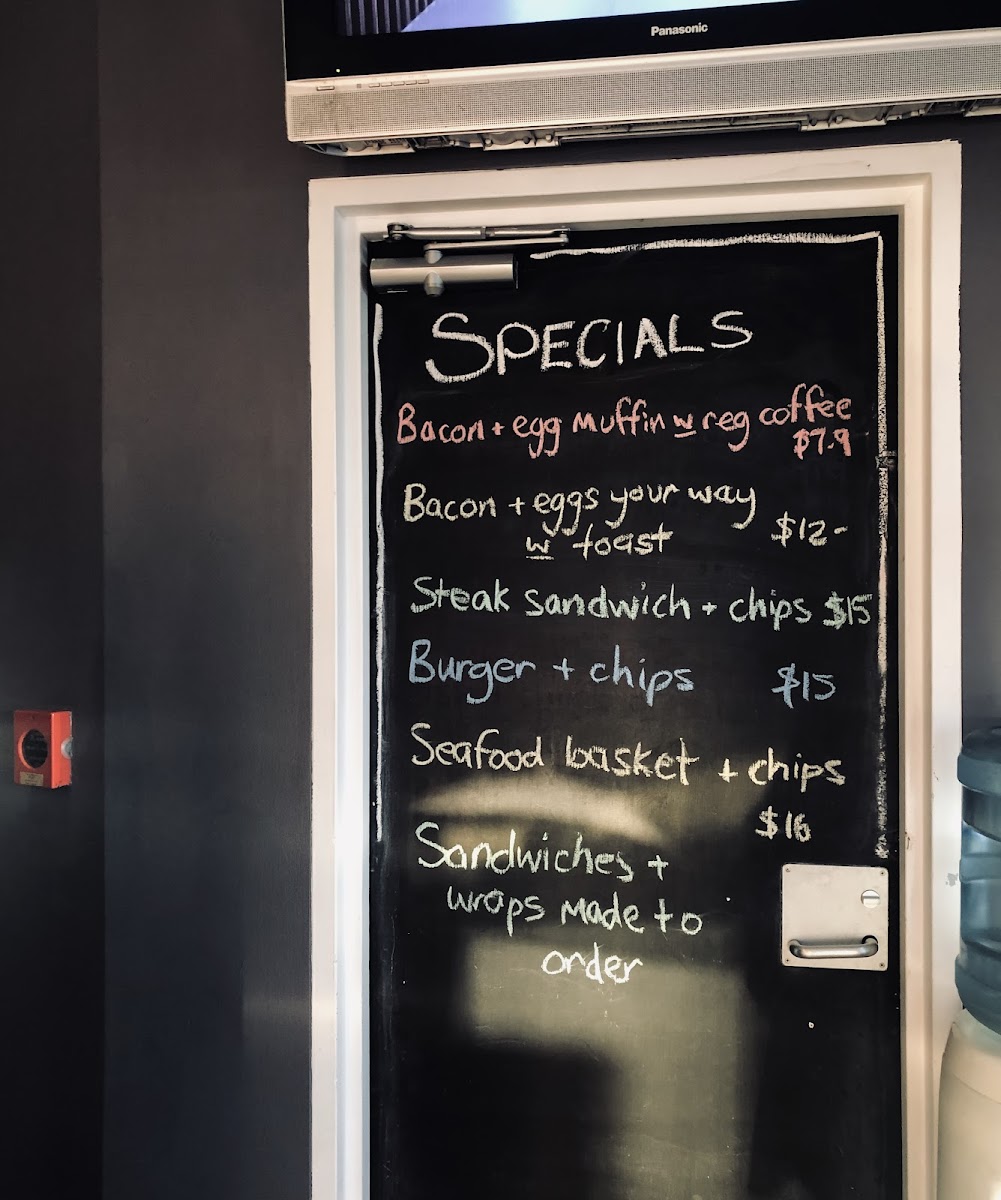 Panasonic
SPECIALS
Bacon + egg muffin w reg coffee
$7.9
Bacon + eggs your way
w toast $12-
Steak sandwich + chips $15
Burger + chips $15
Seafood basket + chips
$16
Sandwiches +
wraps made to
order